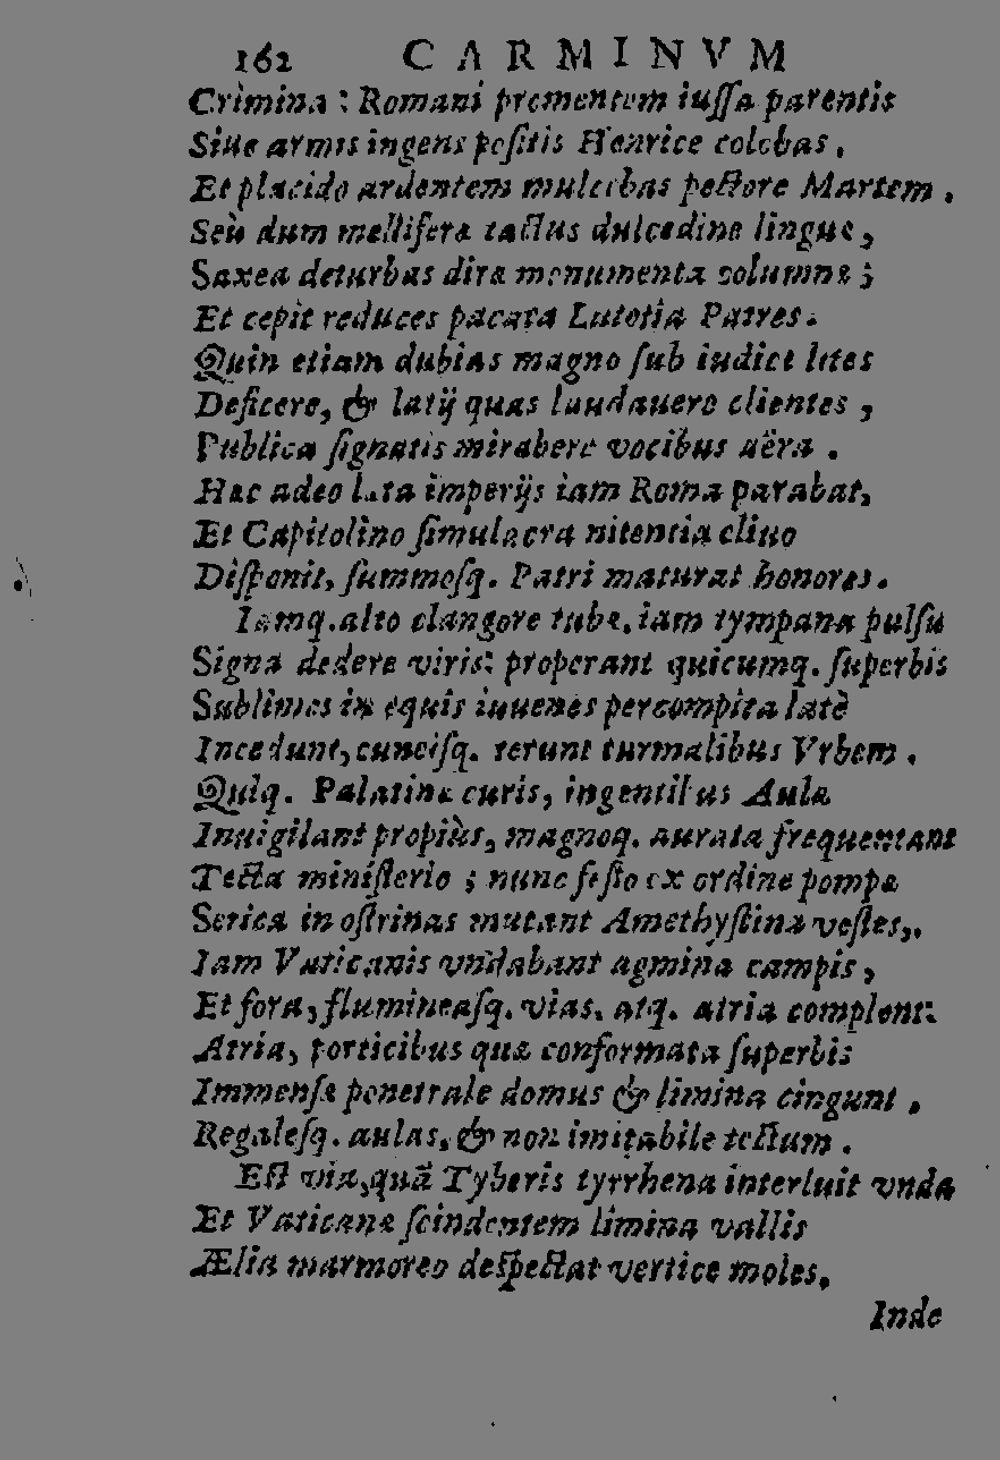 162 CARMINVM
Crimina : Romani prementem iussa parentis
Siue armis ingens positis Henrice colebas,
Et placido ardentem mulcebas pectore Martem.
Seù dum mellifera tactus dulcedine lingue,
Saxea deturbas diræ monumenta columnæ ;
Et cepit reduces pacata Lutetia Patres.
Quin etiam dubias magno sub iudice lites
Deficere, & latij quas laudauere clientes,
Publica signatis mirabere vocibus aëra.
Hæc adeo læta imperijs iam Roma parabat,
Et Capitolino simulacra nitentia cliuo
Disponit, summosq. Patri maturat honores.
Iamq. alto clangore tubæ, iam tympana pulsu
Signa dedere viris: properant quicumq. superbis
Sublimes in equis iuuenes per compita latè
Incedunt, cuneisq. terunt turmalibus Vrbem.
Quiq. Palatinæ curis, ingentibus Aulæ
Inuigilant propiùs, magnoq. aurata frequentant
Tecta ministerio ; nunc festo ex ordine pompæ
Serica in ostrinas mutant Amethystina vestes,.
Iam Vaticanis vndabant agmina campis,
Et fora, flumineasq. vias, atq. atria complent:
Atria, porticibus quæ conformata superbis
Immensæ penetrale domus & limina cingunt,
Regalesq. aulas, & non imitabile tectum.
Est via, quâ Tyberis tyrrhena interluit vnda
Et Vaticanæ scindentem limina vallis
Ælia marmoreo despectat vertice moles,
Inde